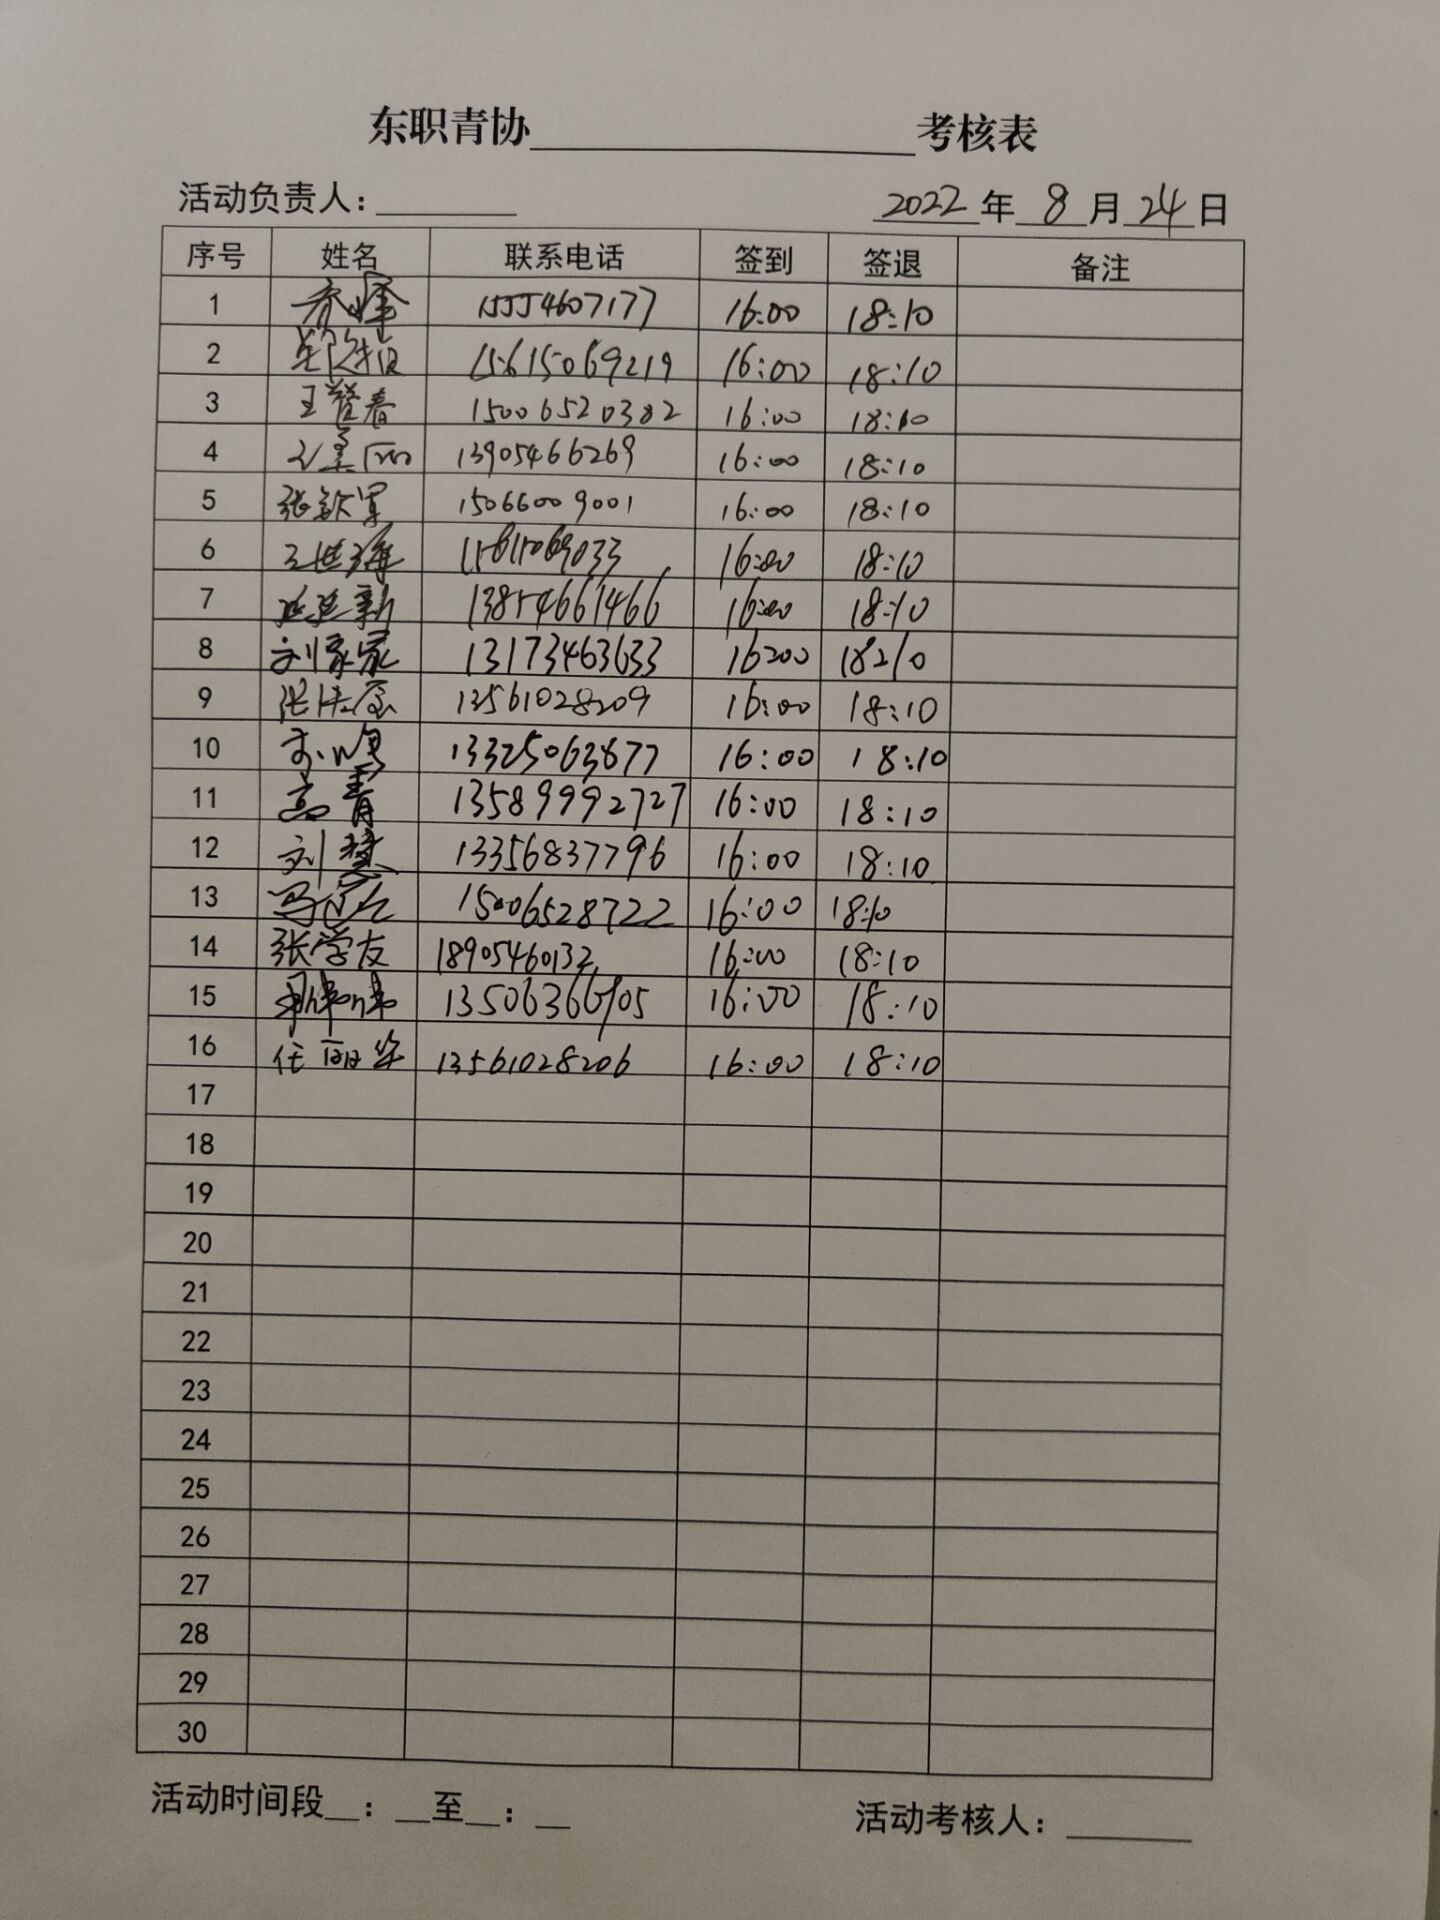 东职青协____________考核表
活动负责人：______ 2022年 8 月 24 日
序号 姓名 联系电话 签到 签退 备注
1 乔峰 15554607177 16:00 18:10
2 15615069219 16:00 18:10
3 王 春 15006520382 16:00 18:10
4 13905466269 16:00 18:10
5 张 军 15066009001 16:00 18:10
6 王世海 15615069033 16:00 18:10
7 新 13854661466 16:00 18:10
8 刘家家 13173463633 16:00 18:10
9 张 13561028209 16:00 18:10
10 13325063877 16:00 18:10
11 高青 13589992727 16:00 18:10
12 刘慧 13356837796 16:00 18:10
13 15006528722 16:00 18:10
14 张学友 18905460132 16:00 18:10
15 13506366905 16:00 18:10
16 任丽华 13561028206 16:00 18:10
17
18
19
20
21
22
23
24
25
26
27
28
29
30
活动时间段__：__至__：__ 活动考核人：______